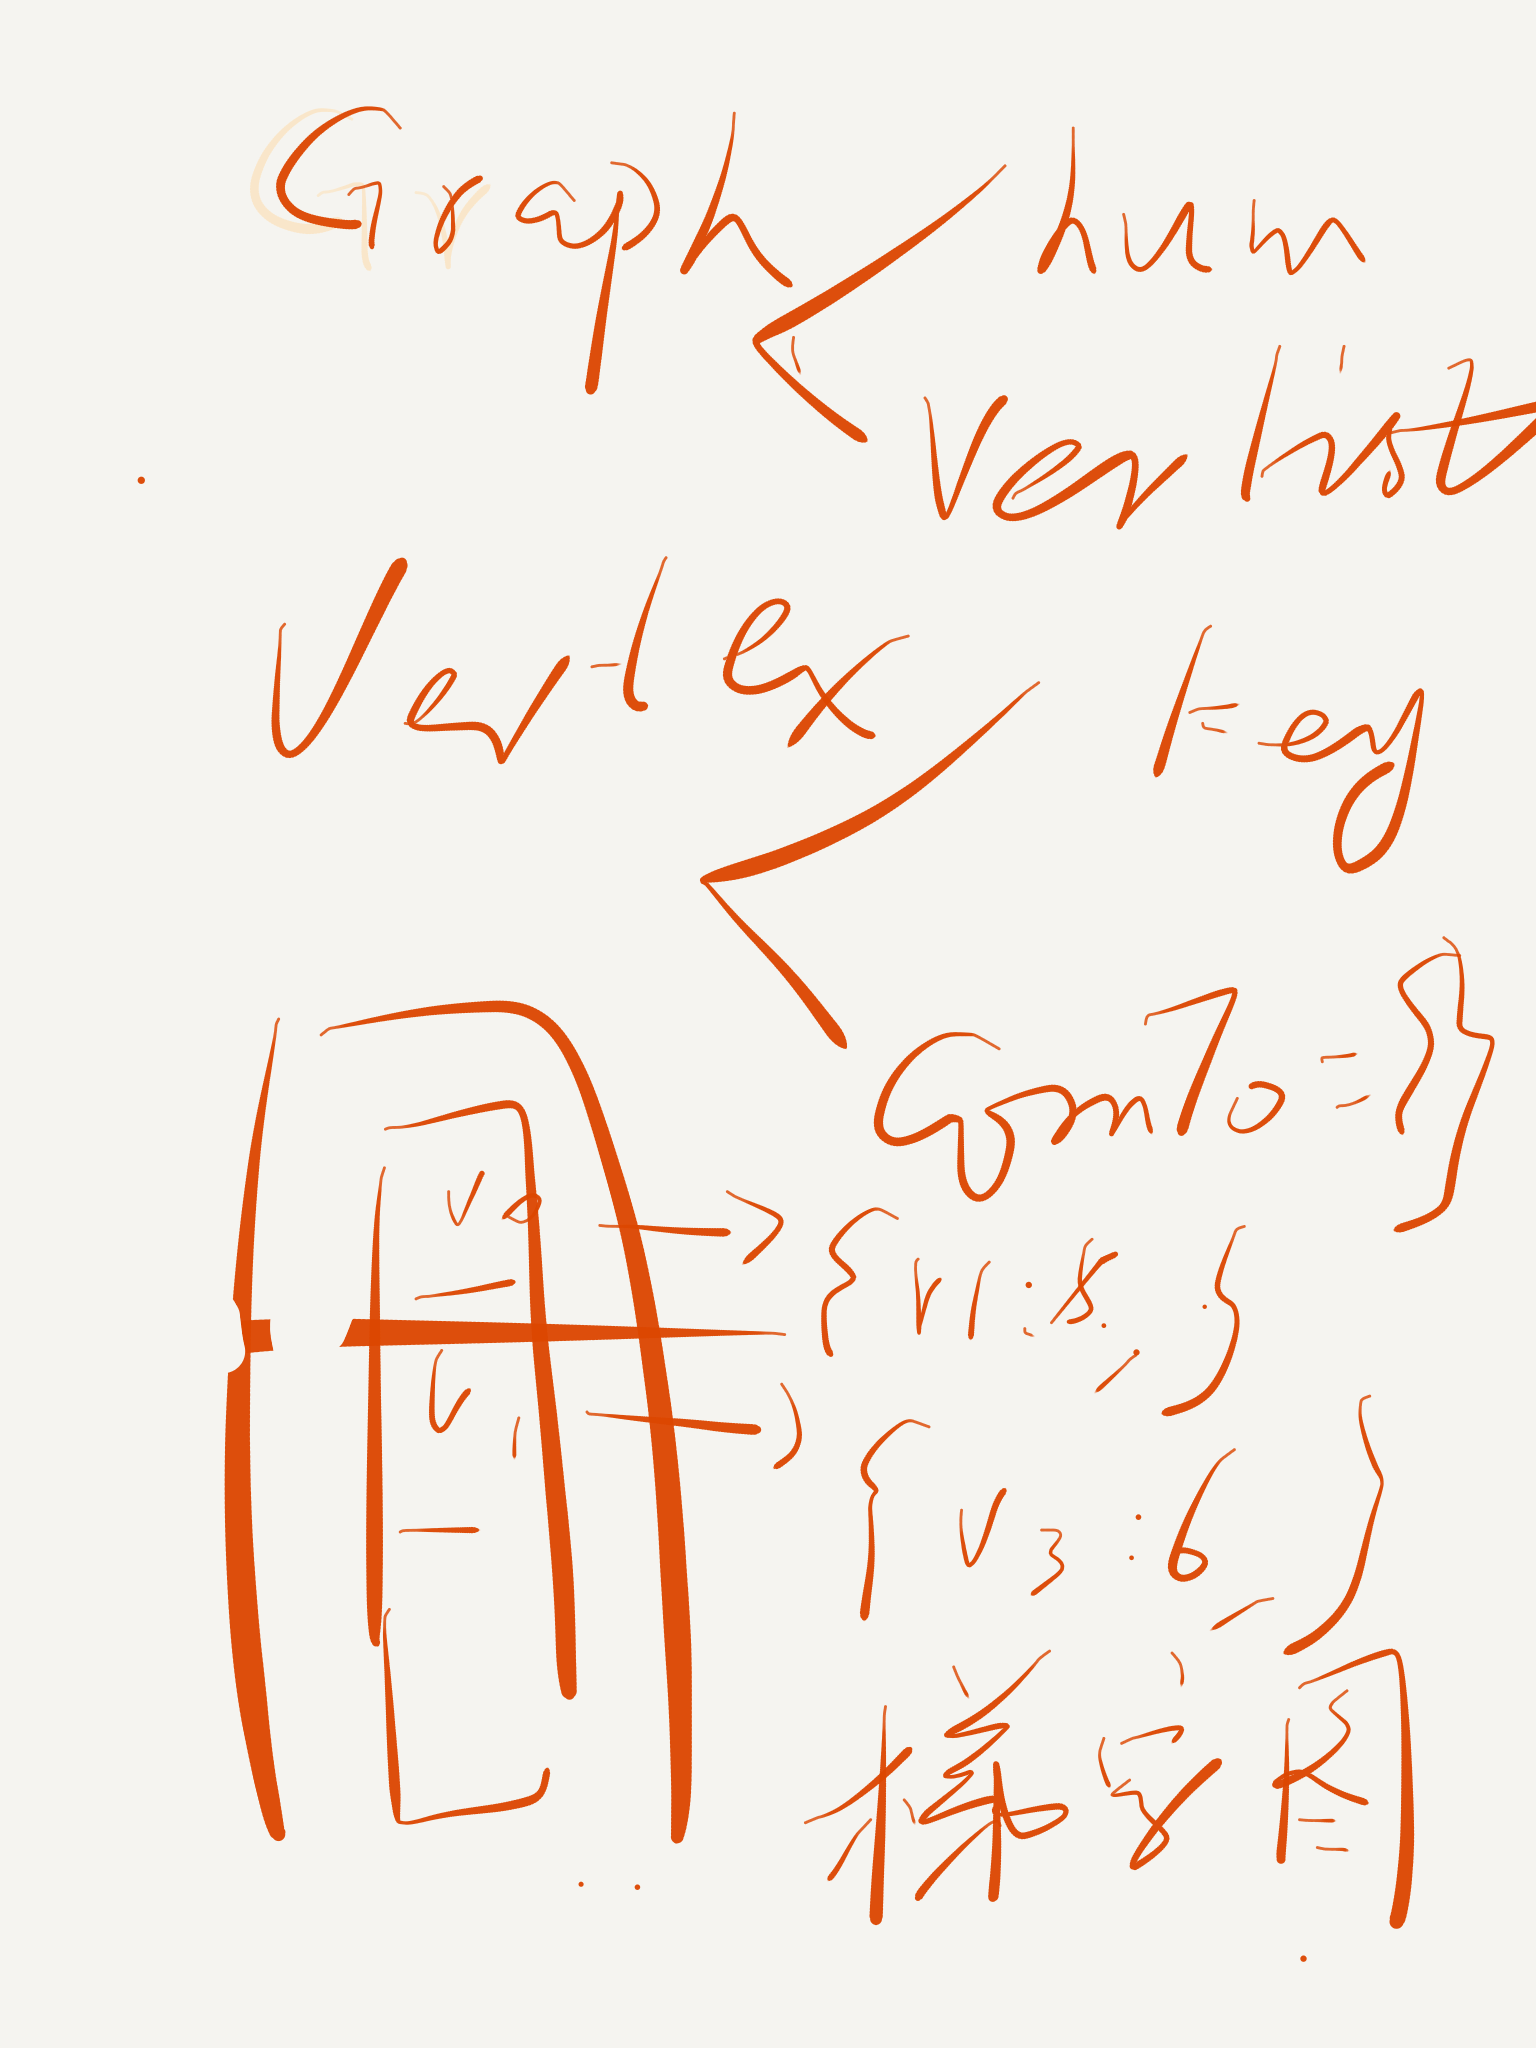 Graph hum
Ver list
Vertex key
ConTo = { }
V0 → { V1 : 5, }
V1 → { V3 : 6, }
图